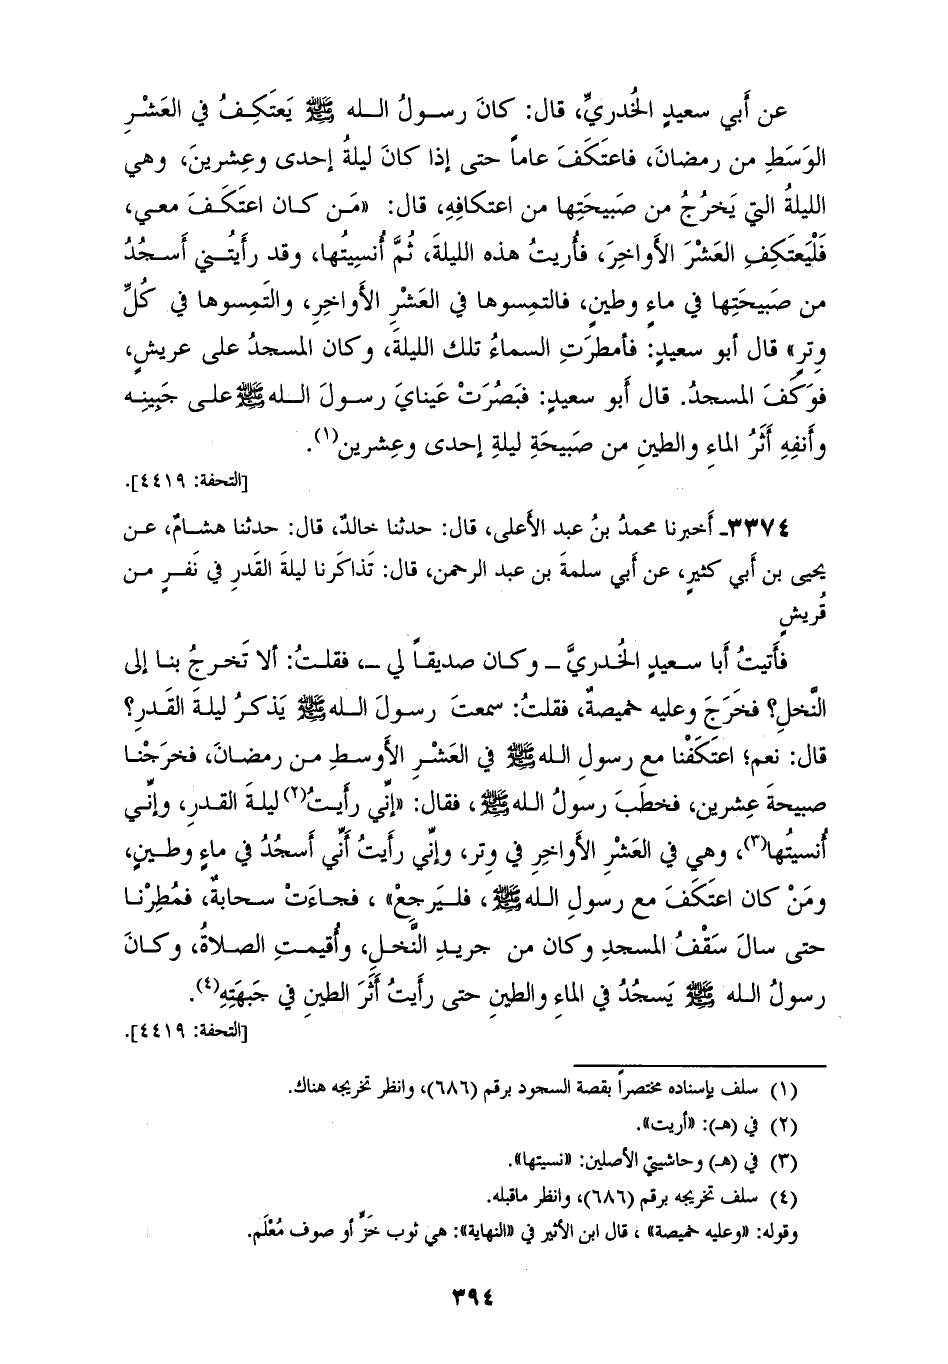 عن أَبي سعيدٍ الخُدريِّ، قال: كانَ رسولُ الله ﷺ يَعتَكِفُ في العَشْرِ
الوَسَطِ من رمضانَ، فاعتَكَفَ عاماً حتى إذا كانَ ليلةُ إحدى وعِشرينَ، وهي
الليلةُ التي يَخرُجُ من صَبيحَتِها من اعتكافِهِ، قال: «مَن كان اعتَكَفَ معي،
فَلْيَعتَكِفِ العَشْرَ الأَواخِرَ، فأُريتُ هذه الليلةَ، ثُمَّ أُنسِيتُها، وقد رأَيتُني أَسجُدُ
من صَبيحَتِها في ماءٍ وطينٍ، فالتمِسوها في العَشْرِ الأَواخِرِ، والتَمِسوها في كُلِّ
وِترٍ» قال أبو سعيدٍ: فأمطرَتِ السماءُ تلك الليلةَ، وكان المسجدُ على عريشٍ،
فوَكَفَ المسجدُ. قال أَبو سعيدٍ: فبَصُرَتْ عَينايَ رسولَ اللهﷺ على جَبِينِه
وأَنفِهِ أَثَرُ الماءِ والطينِ من صَبيحَةِ ليلةِ إحدى وعِشرين(١).
[التحفة: ٤٤١٩].
٣٣٧٤ـ أَخبرنا محمدُ بنُ عبد الأَعلى، قال: حدثنا خالدٌ، قال: حدثنا هشامٌ، عن
يحيى بن أبي كثيرٍ، عن أَبي سلمةَ بن عبد الرحمن، قال: تَذاكَرنا ليلةَ القَدرِ في نَفَرٍ من
قُريشٍ
فأَتيتُ أَبا سعيدٍ الخُدريَّ ـ وكان صديقاً لي ـ، فقلتُ: ألا تَخرجُ بنا إلى
النَّخلِ؟ فخَرَجَ وعليه خميصةٌ، فقلتُ: سمعتَ رسولَ اللهﷺ يَذكرُ ليلةَ القَدرِ؟
قال: نعم؛ اعتَكَفْنا مع رسولِ اللهﷺ في العَشْرِ الأَوسطِ من رمضانَ، فخرَجْنا
صبيحةَ عِشرين، فخطَبَ رسولُ اللهﷺ، فقال: «إنِّي رأَيتُ(٢) ليلةَ القدرِ، وإنِّي
أُنسيتُها(٣)، وهي في العَشْرِ الأَواخِرِ في وترٍ، وإنِّي رأَيتُ أَنِّي أَسجُدُ في ماءٍ وطينٍ،
ومَنْ كان اعتَكَفَ مع رسولِ اللهﷺ، فليَرجِعْ» ، فجاءَتْ سحابةٌ، فمُطِرْنا
حتى سالَ سَقْفُ المسجدِ وكان من جريدِ النَّخلِ، وأُقيمتِ الصلاةُ، وكانَ
رسولُ الله ﷺ يَسجُدُ في الماءِ والطينِ حتى رأَيتُ أَثَرَ الطينِ في جَبهَتِهِ(٤).
[التحفة: ٤٤١٩].
(١) سلف بإسناده مختصراً بقصة السجود برقم (٦٨٦)، وانظر تخريجه هناك.
(٢) في (هـ): «أريت».
(٣) في (هـ) وحاشيتي الأصلين: «نسيتها».
(٤) سلف تخريجه برقم (٦٨٦)، وانظر ماقبله.
وقوله: «وعليه خميصة» ، قال ابن الأثير في «النهاية»: هي ثوب خَزٍّ أو صوف مُعْلَم.
٣٩٤